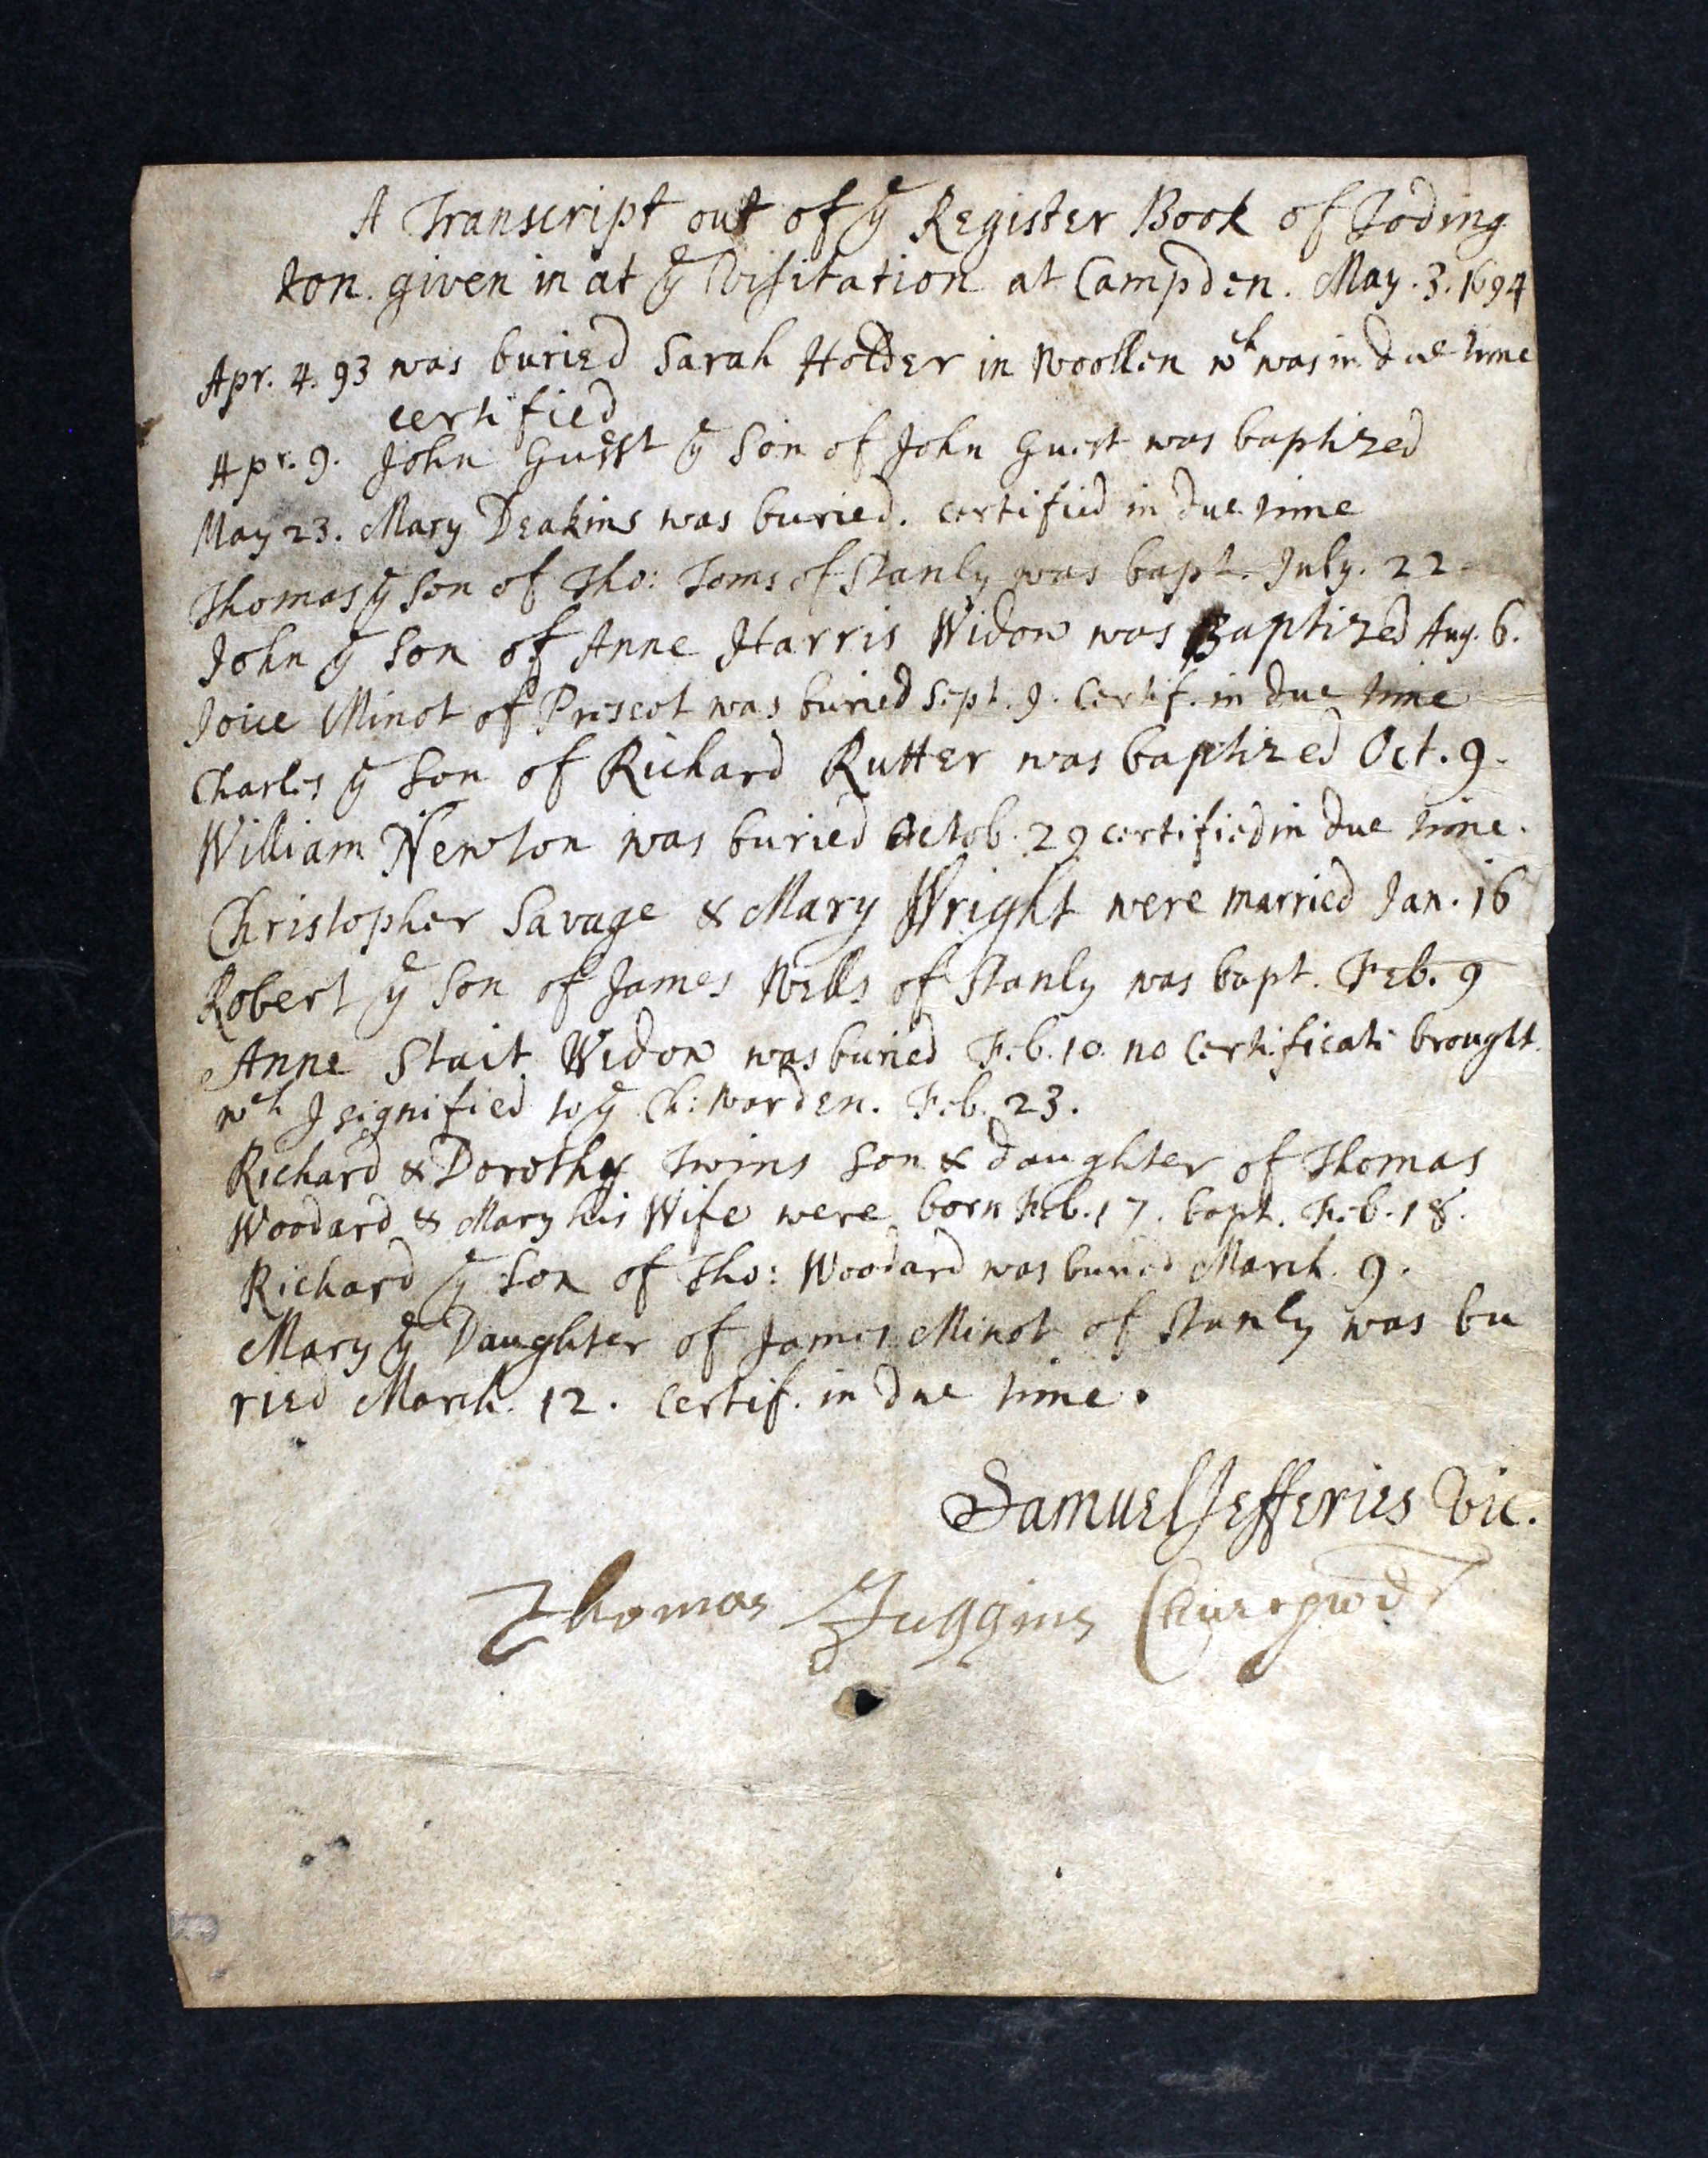 A Transcript out of yͤ Register Book of Toding
ton. given in at yͤ Visitation at Campden. May. 3. 1694
Apr. 4. 93 was buried Sarah Holder in Woollen wᶜʰ was in due time
certified
Apr. 9. John Guest yͤ Son of John Guest was baptized
May 23. Mary Deakins was buried. certified in due time
Thomas yͤ Son of Tho: Toms of Stanly was bapt. July. 22.
John yͤ Son of Anne Harris Widow was Baptized Aug. 6.
Joice Minot of Prescot was buried Sept. 9. Certif. in due time
Charles yͤ Son of Richard Rutter was baptized Oct. 9.
William Newton was buried Octob. 29 certified in due time.
Christopher Savage & Mary Wright were married Jan. 16
Robert yͤ Son of James Wells of Stanly was bapt. Feb. 9
Anne Stait Widow was buried Feb. 10. no Certificate brought.
wᶜʰ I signified to yͤ Ch: warden. Feb. 23.
Richard & Dorothy Twins Son & daughter of Thomas
Woodard & Mary his Wife were born Feb. 17. bapt. Feb. 18.
Richard yͤ Son of Tho: Woodard was buried March. 9.
Mary yͤ Daughter of James Minot of Stanly was bu
ried March. 12. Certif. in due time.
Samuel Jefferies Vic.
Thomas Juggins